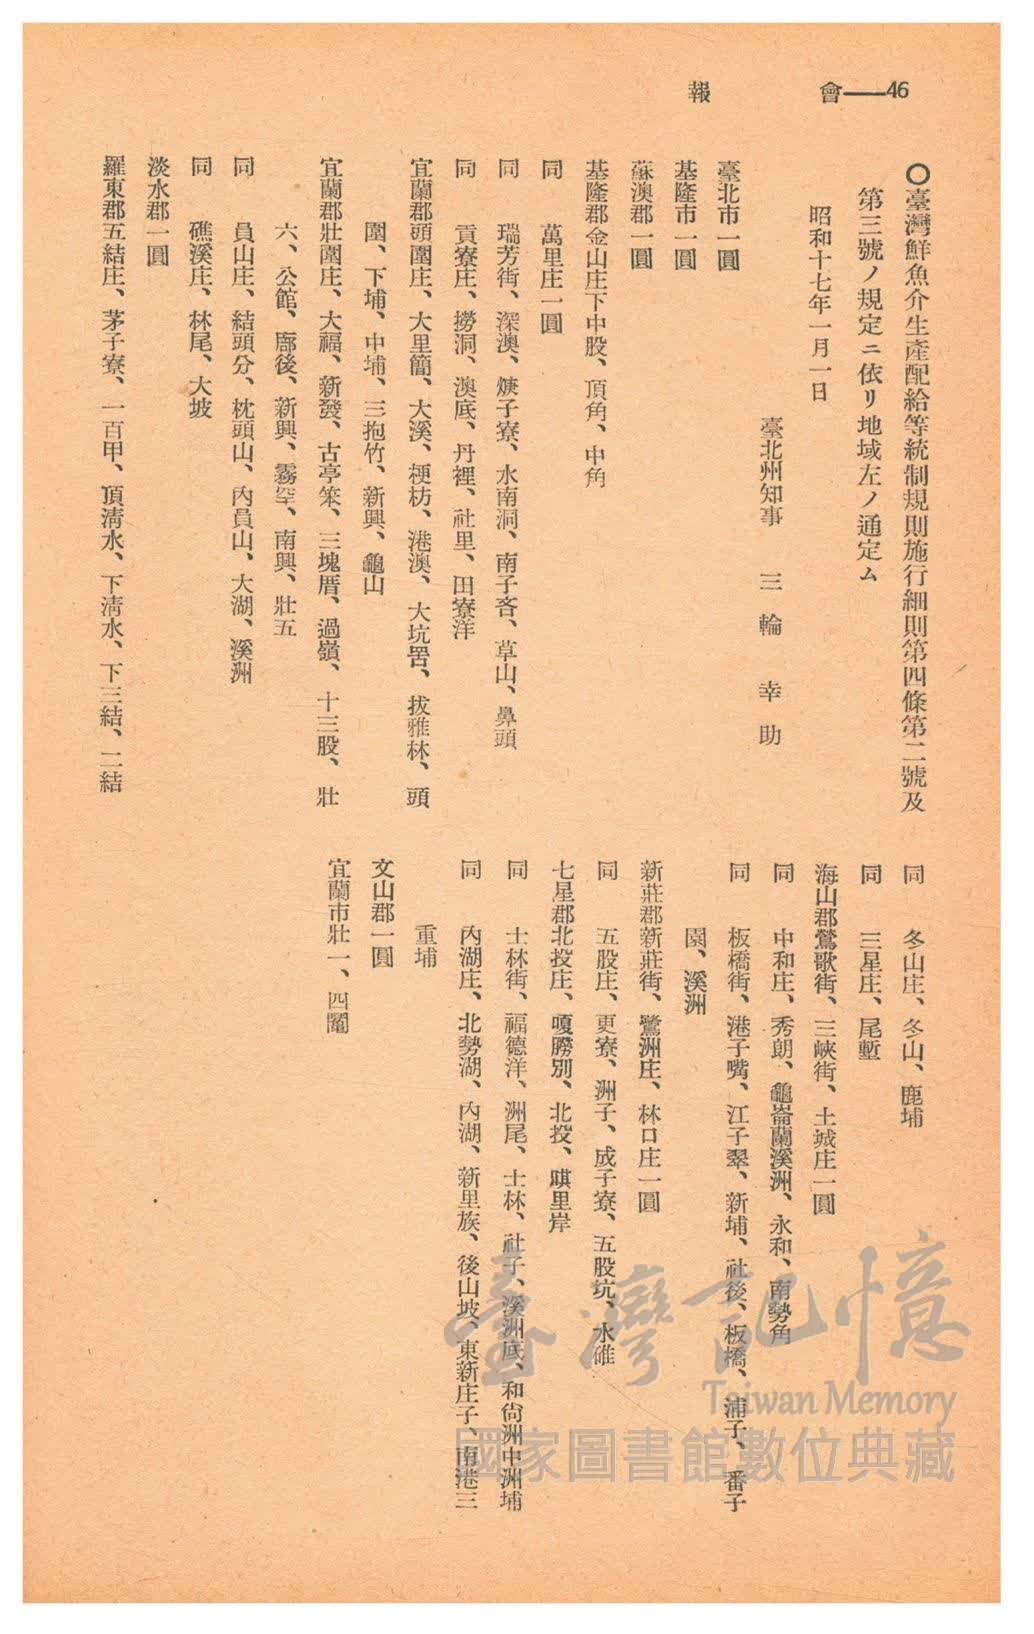 46——會報
○臺灣鮮魚介生產配給等統制規則施行細則第四條第二號及
第三號ノ規定ニ依リ地域左ノ通定ム
昭和十七年一月一日
臺北州知事 三輪幸助
臺北市一圓
基隆市一圓
蘇澳郡一圓
基隆郡金山庄下中股、頂角、中角
同 萬里庄一圓
同 瑞芳街、深澳、焿子寮、水南洞、南子吝、草山、鼻頭
同 貢寮庄、撈洞、澳底、丹裡、社里、田寮洋
宜蘭郡頭圍庄、大里簡、大溪、梗枋、港澳、大坑罟、拔雅林、頭
圍、下埔、中埔、三抱竹、新興、龜山
宜蘭郡壯圍庄、大福、新發、古亭笨、三塊厝、過嶺、十三股、壯
六、公館、廍後、新興、霧罕、南興、壯五
同 員山庄、結頭分、枕頭山、內員山、大湖、溪洲
同 礁溪庄、林尾、大坡
淡水郡一圓
羅東郡五結庄、茅子寮、一百甲、頂清水、下清水、下三結、二結
同 冬山庄、冬山、鹿埔
同 三星庄、尾塹
海山郡鶯歌街、三峽街、土城庄一圓
同 中和庄、秀朗、龜崙蘭溪洲、永和、南勢角
同 板橋街、港子嘴、江子翠、新埔、社後、板橋、浦子、番子
園、溪洲
新莊郡新莊街、鷺洲庄、林口庄一圓
同 五股庄、更寮、洲子、成子寮、五股坑、水碓
七星郡北投庄、嗄嘮別、北投、唭里岸
同 士林街、福德洋、洲尾、士林、社子、溪洲底、和尙洲中洲埔
同 內湖庄、北勢湖、內湖、新里族、後山坡、東新庄子、南港三
重埔
文山郡一圓
宜蘭市壯一、四鬮
臺灣記憶
Taiwan Memory
國家圖書館數位典藏